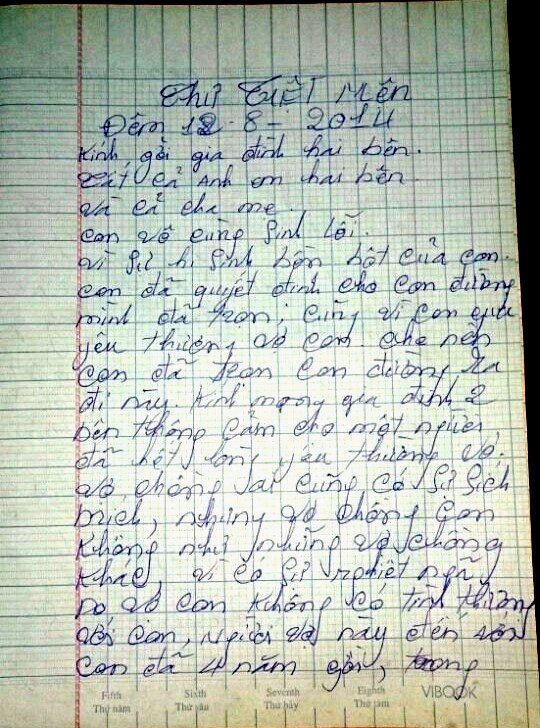 Thư Tuiệt Mên
Đêm 12-8-2014
Kính gởi gia đình hai bên.
Tất cả anh em hai bên
và cả cha mẹ.
con vô cùng sinh lỗi.
vì sự hi sinh bồn bột của con.
con đã quyết định cho con đường
mình đã trọn, cũng vì con quá
yêu thương vợ con cho nên
con đã trọn con đường ra
đi này. Kính mọng gia đình 2
bên thông cảm cho một người
đã hết lòng yêu thương vợ.
vợ chồng ai cũng có sự sích
mích, nhưng vợ chồng con
không như những vợ chồng
khác, vì có sự nghiệt ngã
do vợ con không có tình thương
với con, người vợ này đến với
con đã 4 năm gồi, trong
Fifth Sixth Seventh Eighth VIBOOK
Thứ năm Thứ sáu Thứ bảy Thứ tám